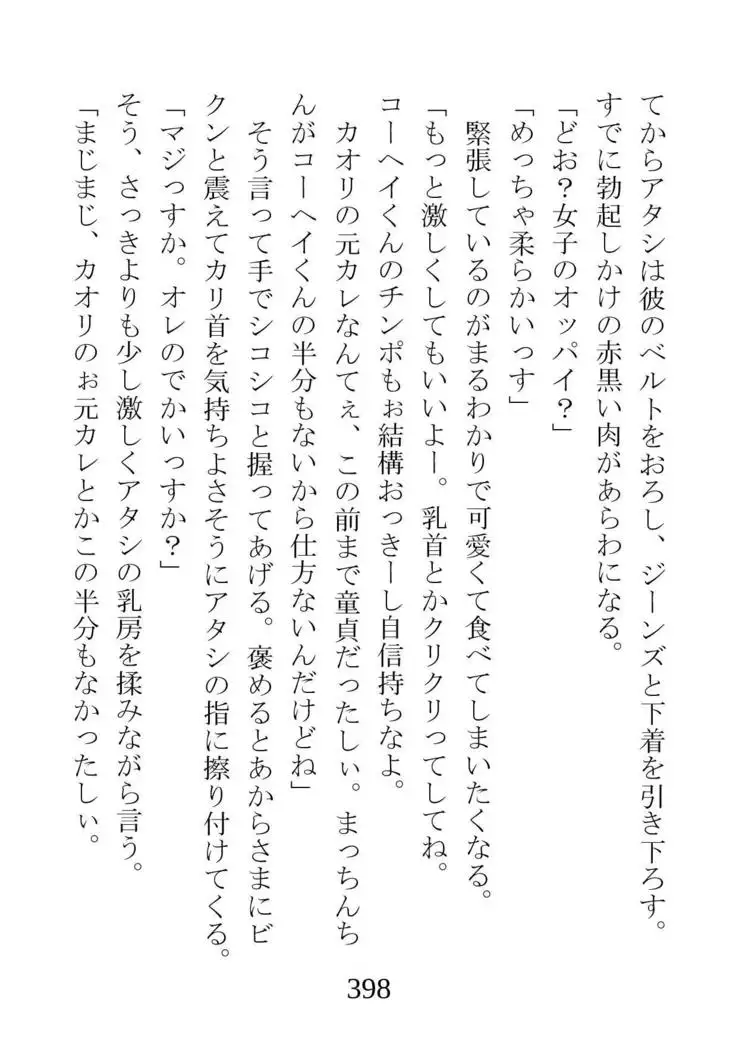 てからアタシは彼のベルトをおろし、ジーンズと下着を引き下ろす。
すでに勃起しかけの赤黒い肉があらわになる。
「どお？女子のオッパイ？」
「めっちゃ柔らかいっす」
緊張しているのがまるわかりで可愛くて食べてしまいたくなる。
「もっと激しくしてもいいよー。乳首とかクリクリってしてね。
コーヘイくんのチンポもぉ結構おっきーし自信持ちなよ。
カオリの元カレなんてぇ、この前まで童貞だったしぃ。まっちんち
んがコーヘイくんの半分もないから仕方ないんだけどね」
そう言って手でシコシコと握ってあげる。褒めるとあからさまにビ
クンと震えてカリ首を気持ちよさそうにアタシの指に擦り付けてくる。
「マジっすか。オレのでかいっすか？」
そう、さっきよりも少し激しくアタシの乳房を揉みながら言う。
「まじまじ、カオリのぉ元カレとかこの半分もなかったしぃ。
398